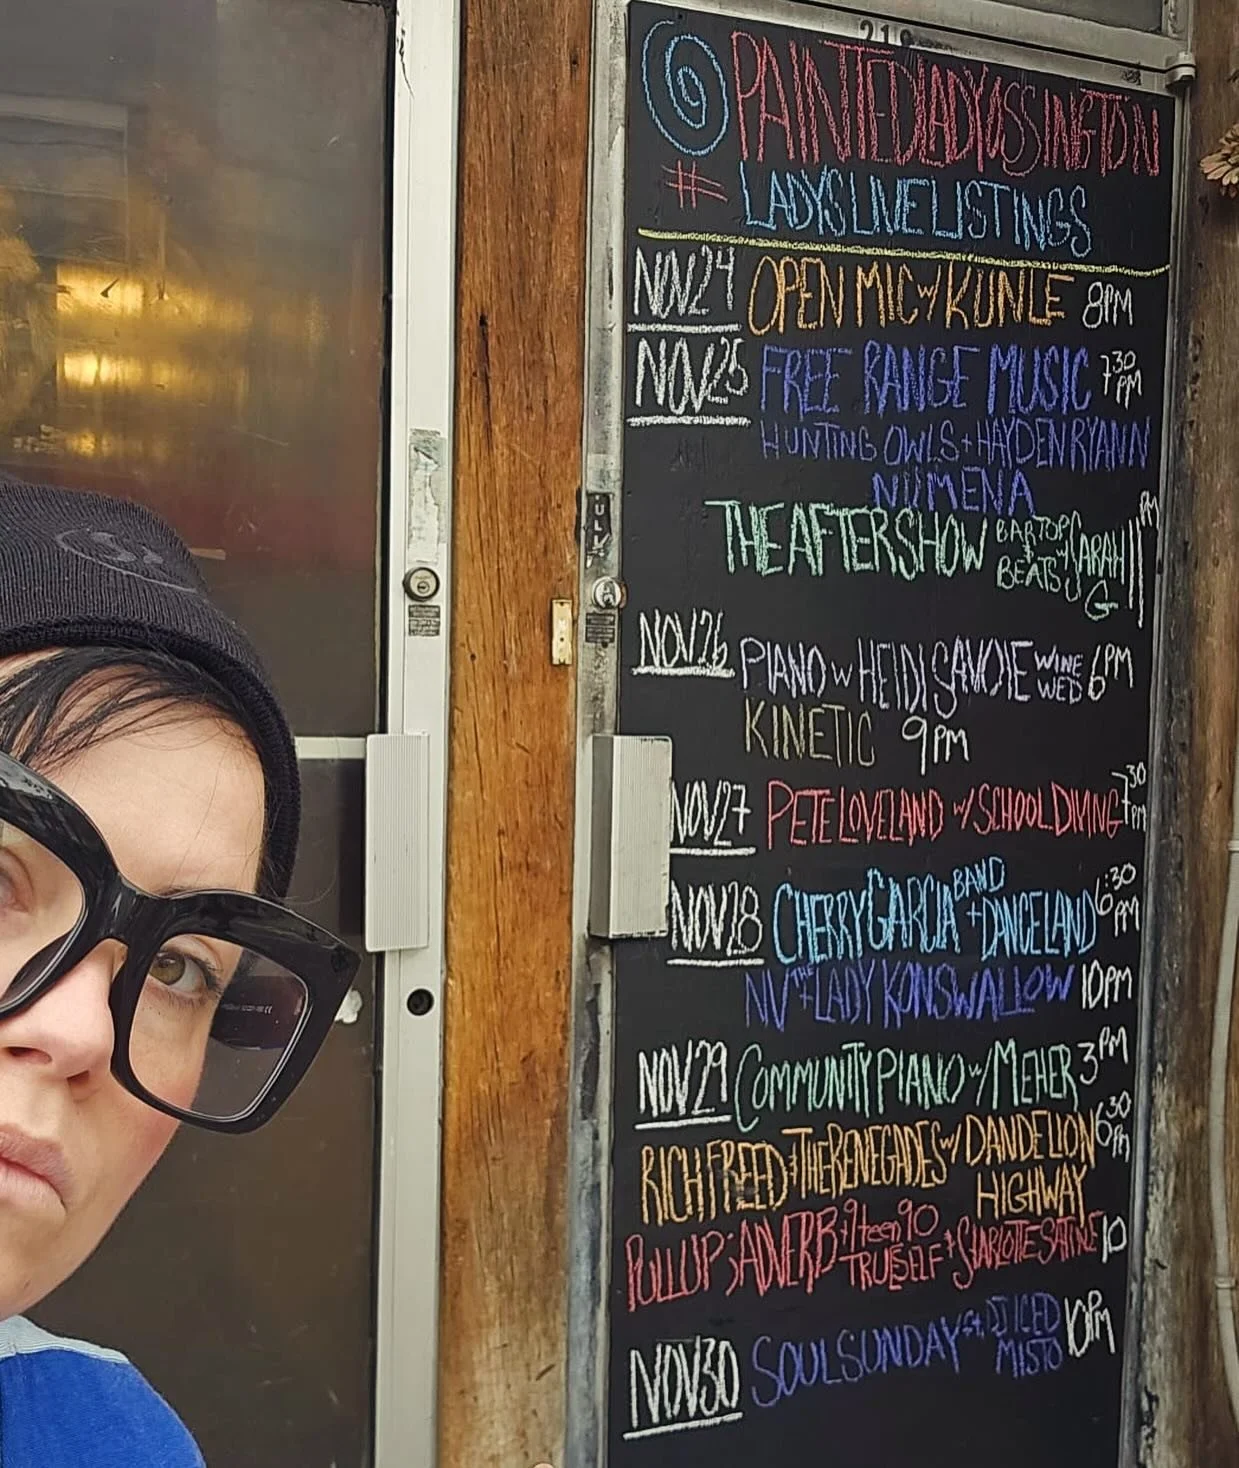 219
@PAINTEDLADYOSSINGTON
#LADYSLIVELISTINGS
NOV24 OPEN MIC w/ KUNLE 8PM
NOV25 FREE RANGE MUSIC 7:30 PM
HUNTING OWLS + HAYDEN RYANN
NUMENA
THE AFTERSHOW BARTOP & BEATS w/ SARAH G 11PM
NOV26 PIANO w HEIDI SAVOIE WINE WED 6PM
KINETIC 9PM
NOV27 PETE LOVELAND w/ SCHOOL DIVING 7:30 PM
NOV28 CHERRY GARCIA BAND + DANCELAND 6:30 PM
NV + THE LADY KONSWALLOW 10PM
NOV29 COMMUNITY PIANO w/ MEHER 3PM
RICH FREED & THE RENEGADES w/ DANDELION HIGHWAY 6:30 PM
PULL UP: ADVERB + 9teen90 TRU SELF + STARLOTTE SATINE 10
NOV30 SOUL SUNDAY ft. DJ ICED MISTO 10PM